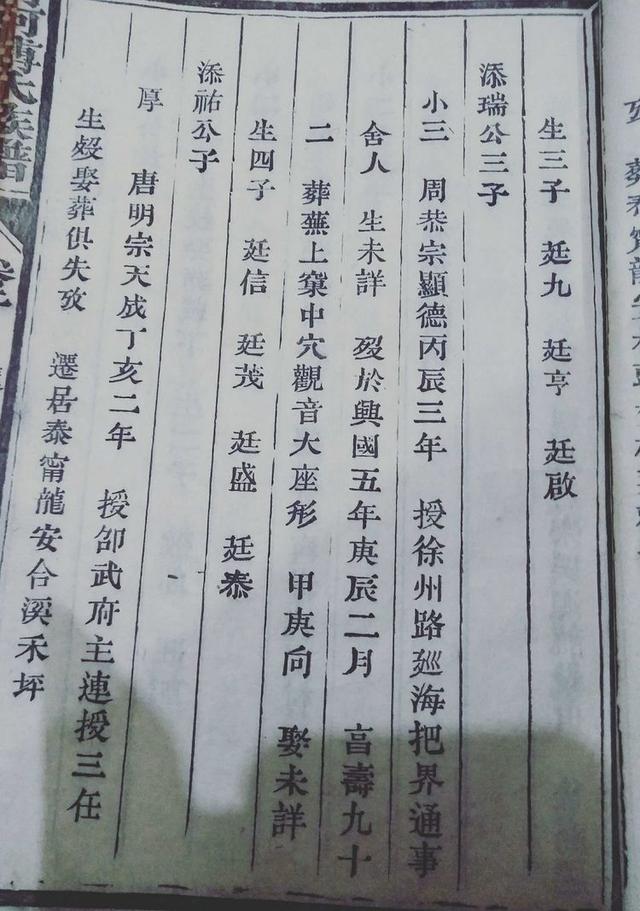 生三子 廷九 廷亨 廷啟
添瑞公三子
小三 周恭宗顯德丙辰三年 授徐州路廵海把界通事
舍人 生未詳 歿於興國五年庚辰二月 亯壽九十
二 葬蕪上窠中穴觀音大座形 甲庚向 娶未詳
生四子 廷信 廷茂 廷盛 廷泰
添祐公子
厚 唐明宗天成丁亥二年 授邵武府主連授三任
生歿娶葬俱失攷 遷居泰甯龍安合溪禾坪
氏族譜